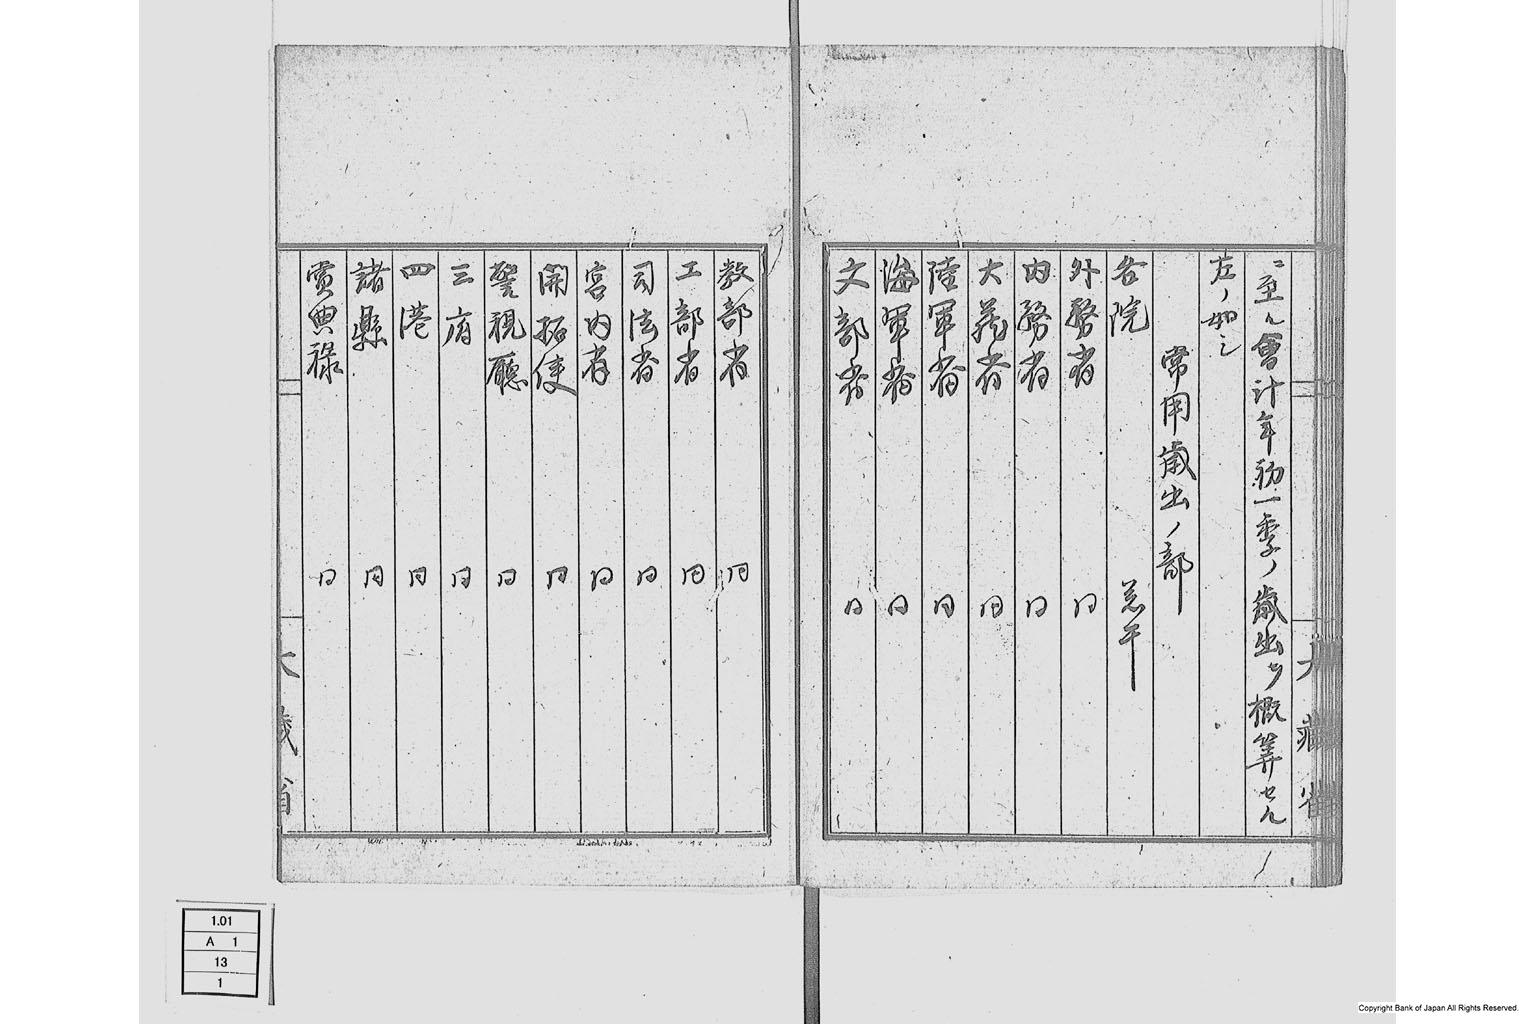 ニ至ル會計年初一季ノ歳出ヲ概算セル
左ノ如シ
常用歳出ノ部
各院 若干
外務省 同
内務省 同
大蔵省 同
陸軍省 同
海軍省 同
文部省 同
大藏省
教部省 同
工部省 同
司法省 同
宮内省 同
開拓使 同
警視廳 同
三府 同
四港 同
諸縣 同
賞典禄 同
大藏省
1.01
A 1
13
1
Copyright Bank of Japan All Rights Reserved.